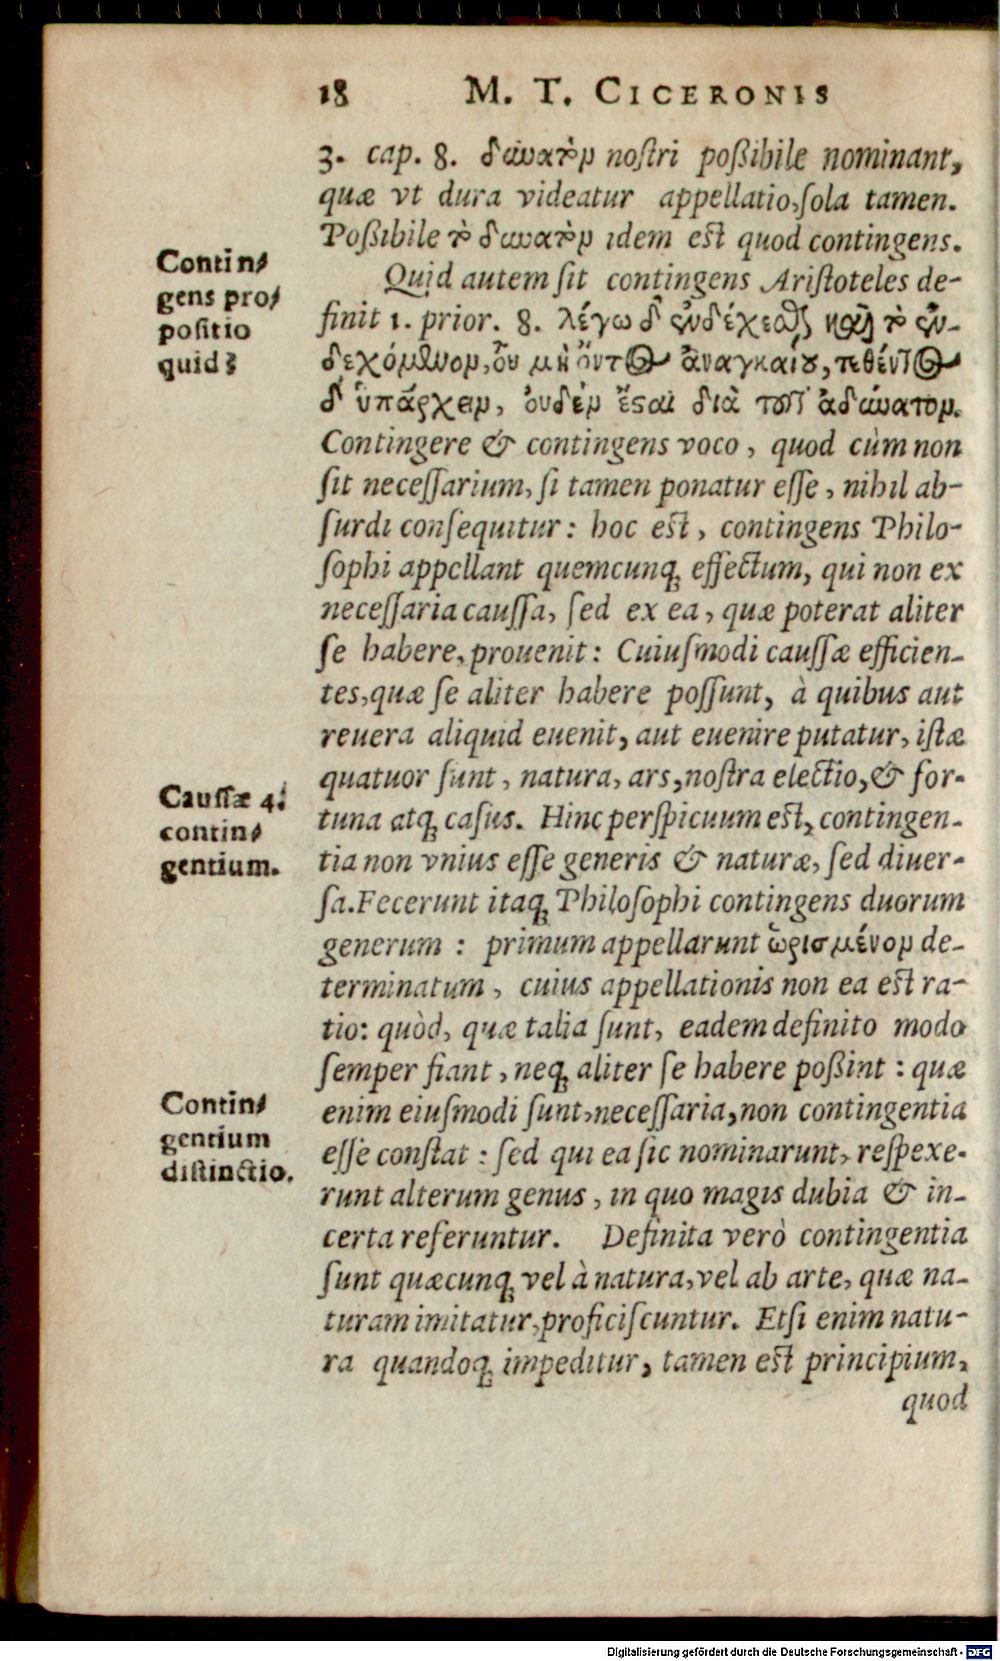 18 M. T. CICERONIS
3. cap. 8. δυνατὸν noſtri poßibile nominant,
quæ vt dura videatur appellatio, ſola tamen.
Poßibile τὸ δυνατὸν idem eſt quod contingens.
Contin/
gens pro/
poſitio
quid?
Quid autem ſit contingens Ariſtoteles de-
finit 1. prior. 8. λέγω δ' ἐνδέχεσθαι καὶ τὸ ἐν-
δεχόμενον, οὗ μὴ ὄντος ἀναγκαίου, τεθέντος
δ' ὑπάρχειν, ουδὲν ἔςαι διὰ τοῦτ' ἀδύνατον.
Contingere & contingens voco, quod cùm non
ſit neceſſarium, ſi tamen ponatur eſſe, nihil ab-
ſurdi conſequitur: hoc eſt, contingens Philo-
ſophi appellant quemcunq; effectum, qui non ex
neceſſaria cauſſa, ſed ex ea, quæ poterat aliter
ſe habere, prouenit: Cuiuſmodi cauſſæ efficien-
tes, quæ ſe aliter habere poſſunt, à quibus aut
reuera aliquid euenit, aut euenire putatur, iſtæ
quatuor ſunt, natura, ars, noſtra electio, & for-
Cauſſæ 4.
contin/
gentium.
tuna atq; caſus. Hinc perſpicuum eſt, contingen-
tia non vnius eſſe generis & naturæ, ſed diuer-
ſa. Fecerunt itaq; Philoſophi contingens duorum
generum : primum appellarunt ὡρισμένον de-
terminatum, cuius appellationis non ea eſt ra-
tio: quòd, quæ talia ſunt, eadem definito modo
ſemper fiant, neq; aliter ſe habere poßint : quæ
Contin/
gentium
diſtinctio.
enim eiuſmodi ſunt, neceſſaria, non contingentia
eſſe conſtat : ſed qui ea ſic nominarunt, reſpexe-
runt alterum genus, in quo magis dubia & in-
certa referuntur. Definita verò contingentia
ſunt quæcunq; vel à natura, vel ab arte, quæ na-
turam imitatur, proficiſcuntur. Etſi enim natu-
ra quandoq; impeditur, tamen eſt principium,
quod
Digitalisierung gefördert durch die Deutsche Forschungsgemeinschaft - DFG